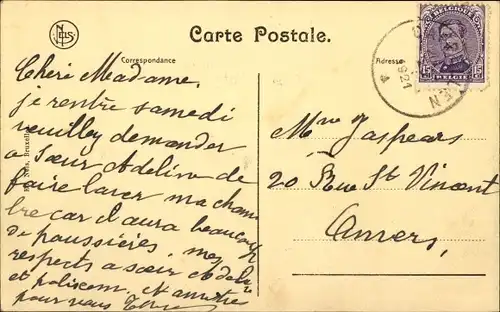 NELS
Carte Postale.
Correspondance
Adresse
BELGIQUE
15 15
BELGIE
1921
4
Chère Madame,
je rentre samedi
veuillez demander
a Sœur Adeline de
faire laver ma cham
bre car il aura beaucoup
de poussières, mes
respects a sœur Adeline
et
pour vous
Mme Jaspears
20 Rue St Vincent
Anvers,
Nels, Bruxelles